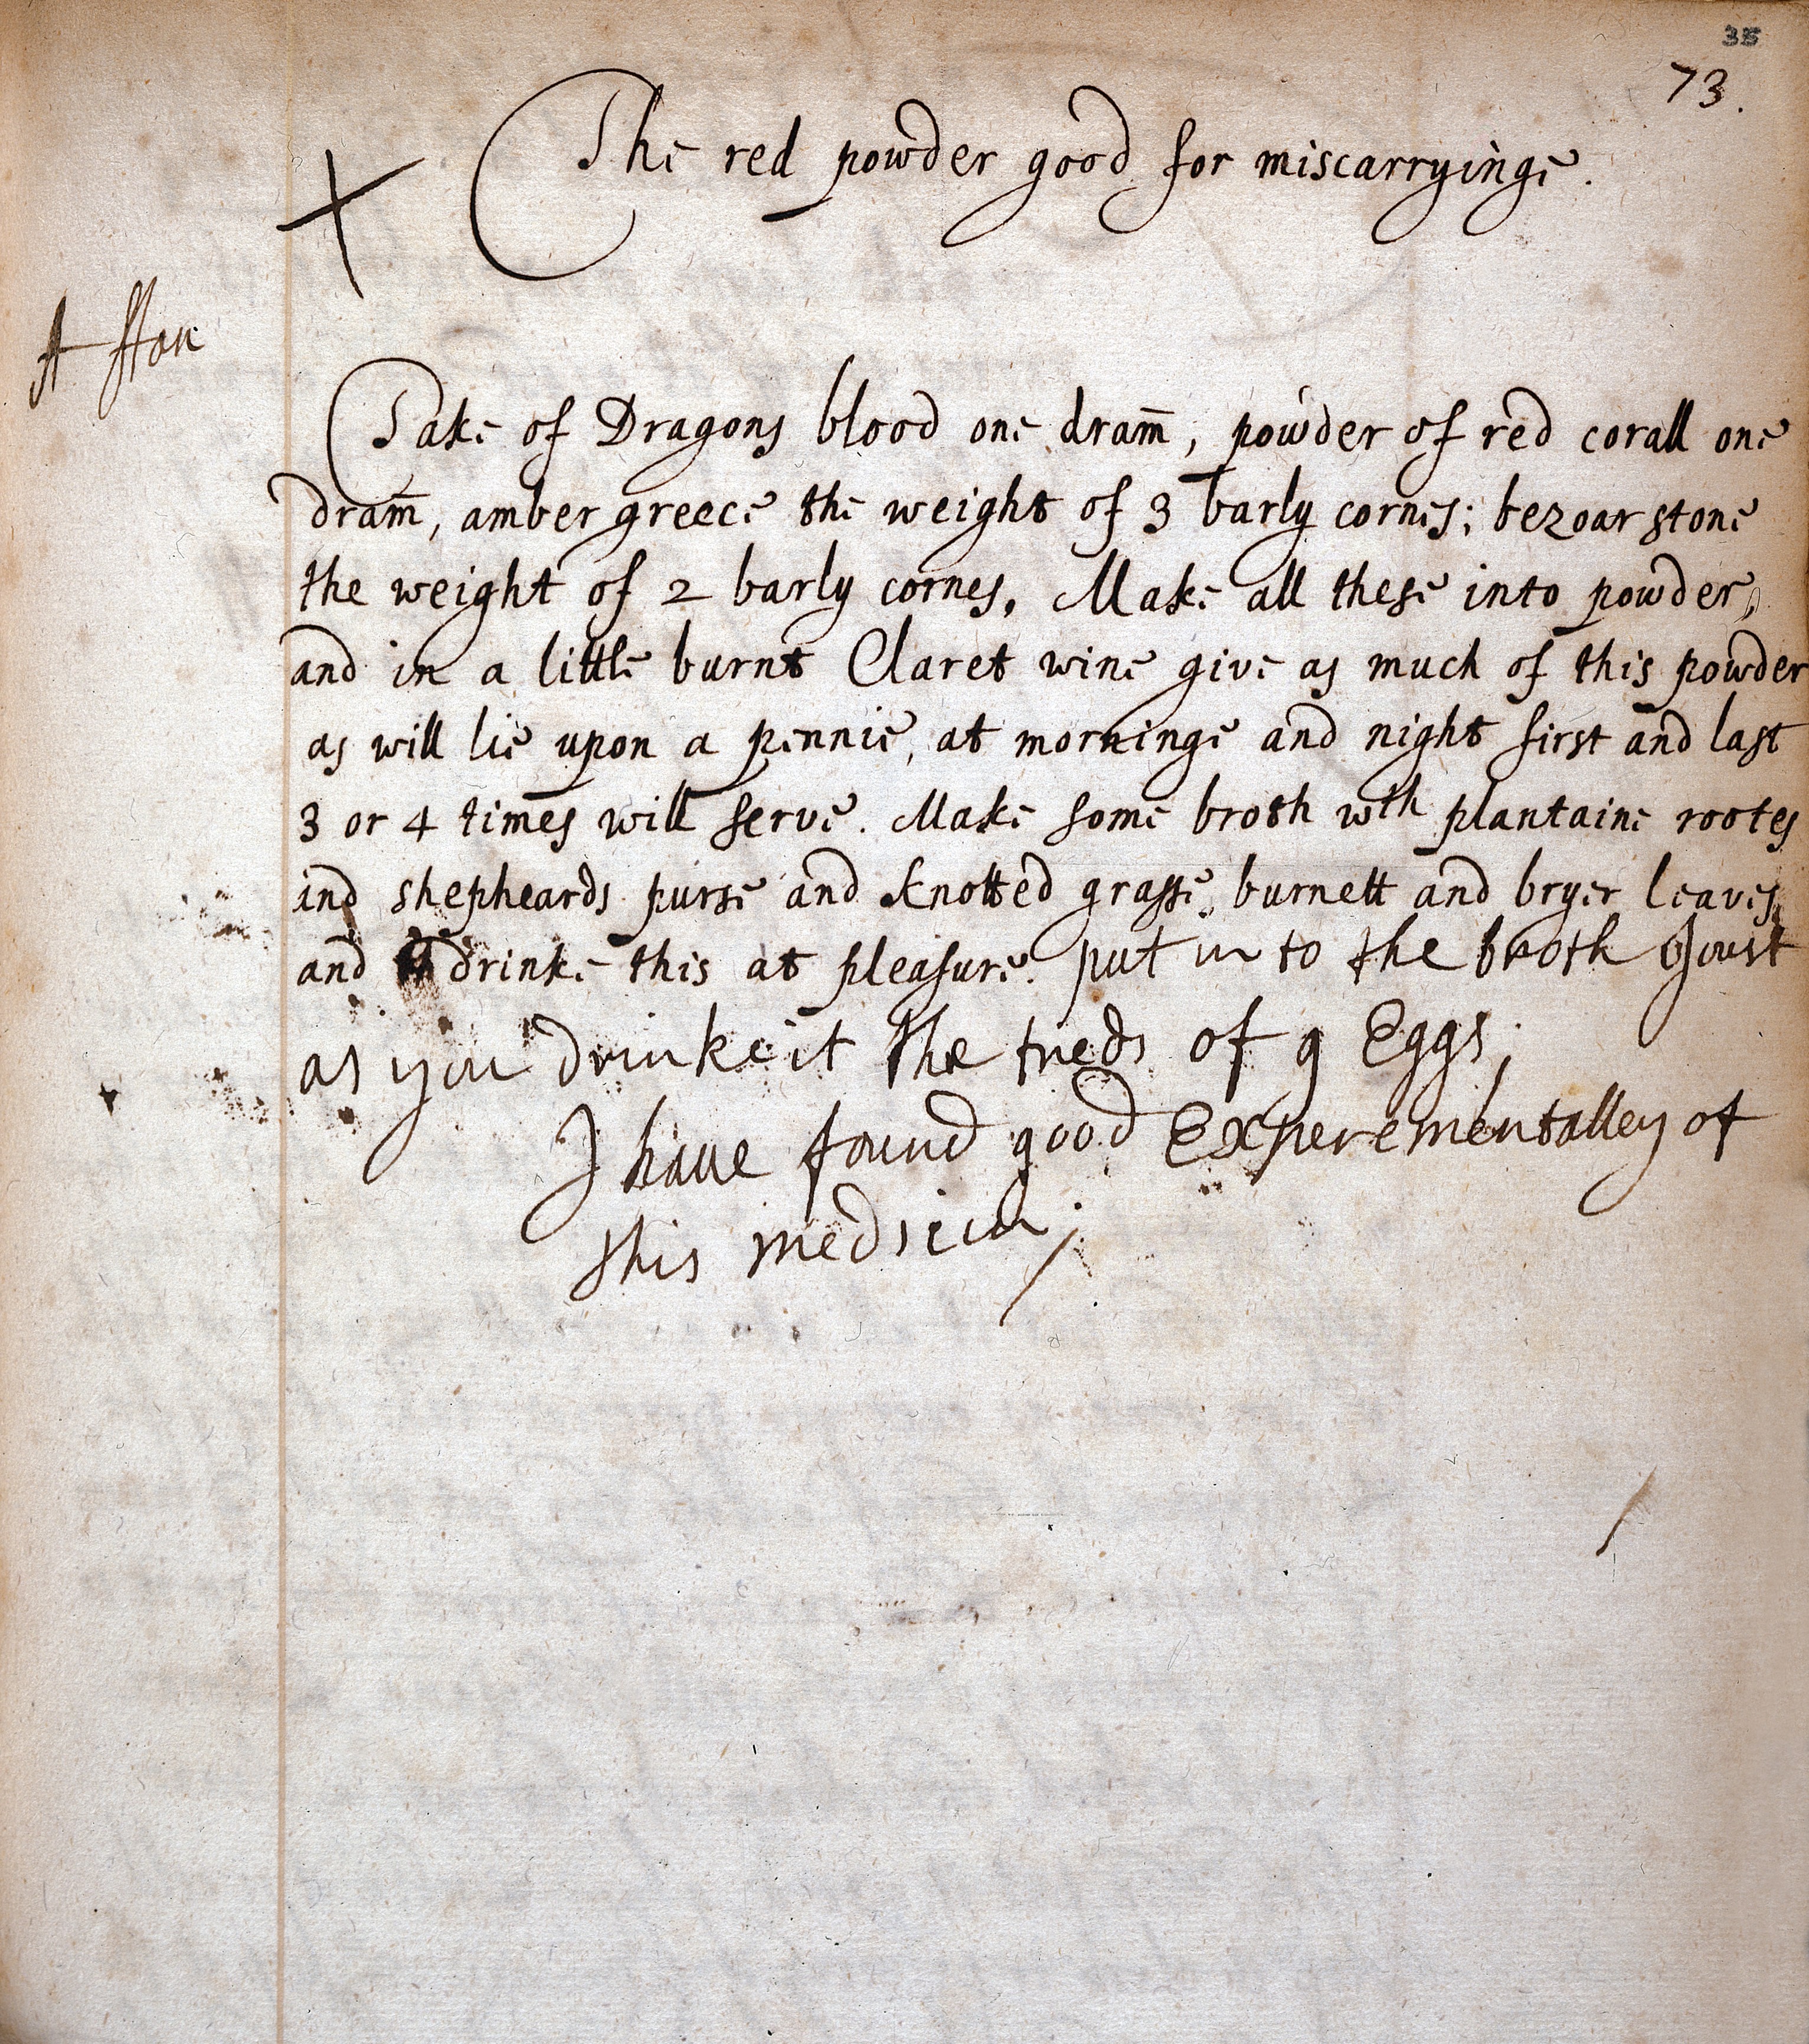 35
73.
The red powder good for miscarryinge.
Take of Dragons blood one dram̄, powder of red corall one
dram̄, amber greece the weight of 3 barly cornes; bezoar stone
the weight of 2 barly cornes. Make all these into powder,
and in a little burnt Claret wine give as much of this powder
as will lie upon a pennie, at morninge and night first and last
3 or 4 times will serve. Make some broth wth plantaine rootes
and shepheards purse and knotted grasse, burnett and bryer leaves
and drinke this at pleasure. put in to the broth Joust
as you drinke it the treds of 9 Eggs;
I haue found good Experementalley of
this medsicin;